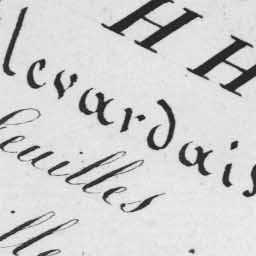 HH
levardais
feuilles
ille